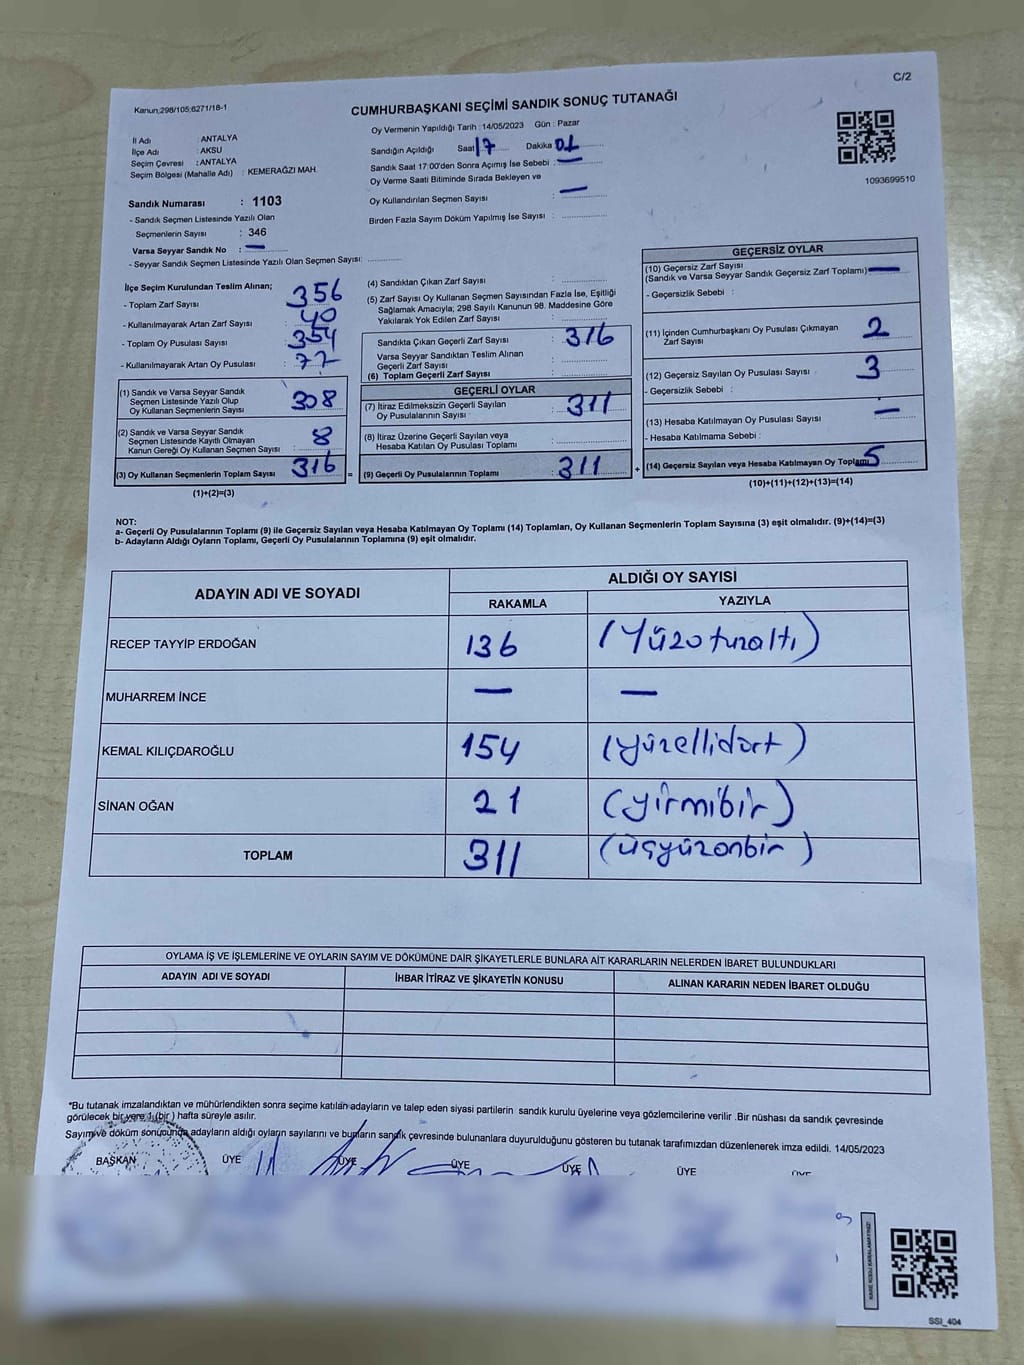 C/2
Kanun;298/105;6271/18-1
CUMHURBAŞKANI SEÇİMİ SANDIK SONUÇ TUTANAĞI
İl Adı : ANTALYA
İlçe Adı : AKSU
Seçim Çevresi : ANTALYA
Seçim Bölgesi (Mahalle Adı) : KEMERAĞZI MAH.
Oy Vermenin Yapıldığı Tarih : 14/05/2023 Gün : Pazar
Sandığın Açıldığı Saat 17 Dakika 01
Sandık Saat 17:00'den Sonra Açımış İse Sebebi : —
Oy Verme Saati Bitiminde Sırada Bekleyen ve
Oy Kullandırılan Seçmen Sayısı : —
Birden Fazla Sayım Döküm Yapılmış İse Sayısı :
1093699510
Sandık Numarası : 1103
- Sandık Seçmen Listesinde Yazılı Olan
Seçmenlerin Sayısı : 346
Varsa Seyyar Sandık No : —
- Seyyar Sandık Seçmen Listesinde Yazılı Olan Seçmen Sayısı:
İlçe Seçim Kurulundan Teslim Alınan;
- Toplam Zarf Sayısı : 356
- Kullanılmayarak Artan Zarf Sayısı : 40
- Toplam Oy Pusulası Sayısı : 354
- Kullanılmayarak Artan Oy Pusulası : 77
(1) Sandık ve Varsa Seyyar Sandık
Seçmen Listesinde Yazılı Olup
Oy Kullanan Seçmenlerin Sayısı : 308
(2) Sandık ve Varsa Seyyar Sandık
Seçmen Listesinde Kayıtlı Olmayan
Kanun Gereği Oy Kullanan Seçmen Sayısı : 8
(3) Oy Kullanan Seçmenlerin Toplam Sayısı 316 =
(1)+(2)=(3)
(4) Sandıktan Çıkan Zarf Sayısı :
(5) Zarf Sayısı Oy Kullanan Seçmen Sayısından Fazla İse, Eşitliği
Sağlamak Amacıyla; 298 Sayılı Kanunun 98. Maddesine Göre
Yakılarak Yok Edilen Zarf Sayısı :
Sandıkta Çıkan Geçerli Zarf Sayısı : 316
Varsa Seyyar Sandıktan Teslim Alınan
Geçerli Zarf Sayısı :
(6) Toplam Geçerli Zarf Sayısı :
GEÇERLİ OYLAR
(7) İtiraz Edilmeksizin Geçerli Sayılan
Oy Pusulalarının Sayısı : 311
(8) İtiraz Üzerine Geçerli Sayılan veya
Hesaba Katılan Oy Pusulası Toplamı :
(9) Geçerli Oy Pusulalarının Toplamı : 311 +
GEÇERSİZ OYLAR
(10) Geçersiz Zarf Sayısı
(Sandık ve Varsa Seyyar Sandık Geçersiz Zarf Toplamı) —
- Geçersizlik Sebebi :
(11) İçinden Cumhurbaşkanı Oy Pusulası Çıkmayan
Zarf Sayısı 2
(12) Geçersiz Sayılan Oy Pusulası Sayısı : 3
- Geçersizlik Sebebi :
(13) Hesaba Katılmayan Oy Pusulası Sayısı : —
- Hesaba Katılmama Sebebi :
(14) Geçersiz Sayılan veya Hesaba Katılmayan Oy Toplamı 5
(10)+(11)+(12)+(13)=(14)
NOT:
a- Geçerli Oy Pusulalarının Toplamı (9) ile Geçersiz Sayılan veya Hesaba Katılmayan Oy Toplamı (14) Toplamları, Oy Kullanan Seçmenlerin Toplam Sayısına (3) eşit olmalıdır. (9)+(14)=(3)
b- Adayların Aldığı Oyların Toplamı, Geçerli Oy Pusulalarının Toplamına (9) eşit olmalıdır.
ADAYIN ADI VE SOYADI
ALDIĞI OY SAYISI
RAKAMLA YAZIYLA
RECEP TAYYİP ERDOĞAN 136 (Yüzotuzaltı)
MUHARREM İNCE — —
KEMAL KILIÇDAROĞLU 154 (yüzellidört)
SİNAN OĞAN 21 (yirmibir)
TOPLAM 311 (üçyüzonbir)
OYLAMA İŞ VE İŞLEMLERİNE VE OYLARIN SAYIM VE DÖKÜMÜNE DAİR ŞİKAYETLERLE BUNLARA AİT KARARLARIN NELERDEN İBARET BULUNDUKLARI
ADAYIN ADI VE SOYADI İHBAR İTİRAZ VE ŞİKAYETİN KONUSU ALINAN KARARIN NEDEN İBARET OLDUĞU
*Bu tutanak imzalandıktan ve mühürlendikten sonra seçime katılan adayların ve talep eden siyasi partilerin sandık kurulu üyelerine veya gözlemcilerine verilir .Bir nüshası da sandık çevresinde
görülecek bir yere 1 (bir ) hafta süreyle asılır.
Sayım ve döküm sonucunda adayların aldığı oyların sayılarını ve bunların sandık çevresinde bulunanlara duyurulduğunu gösteren bu tutanak tarafımızdan düzenlenerek imza edildi. 14/05/2023
BAŞKAN ÜYE ÜYE ÜYE ÜYE ÜYE ÜYE
SSI_404